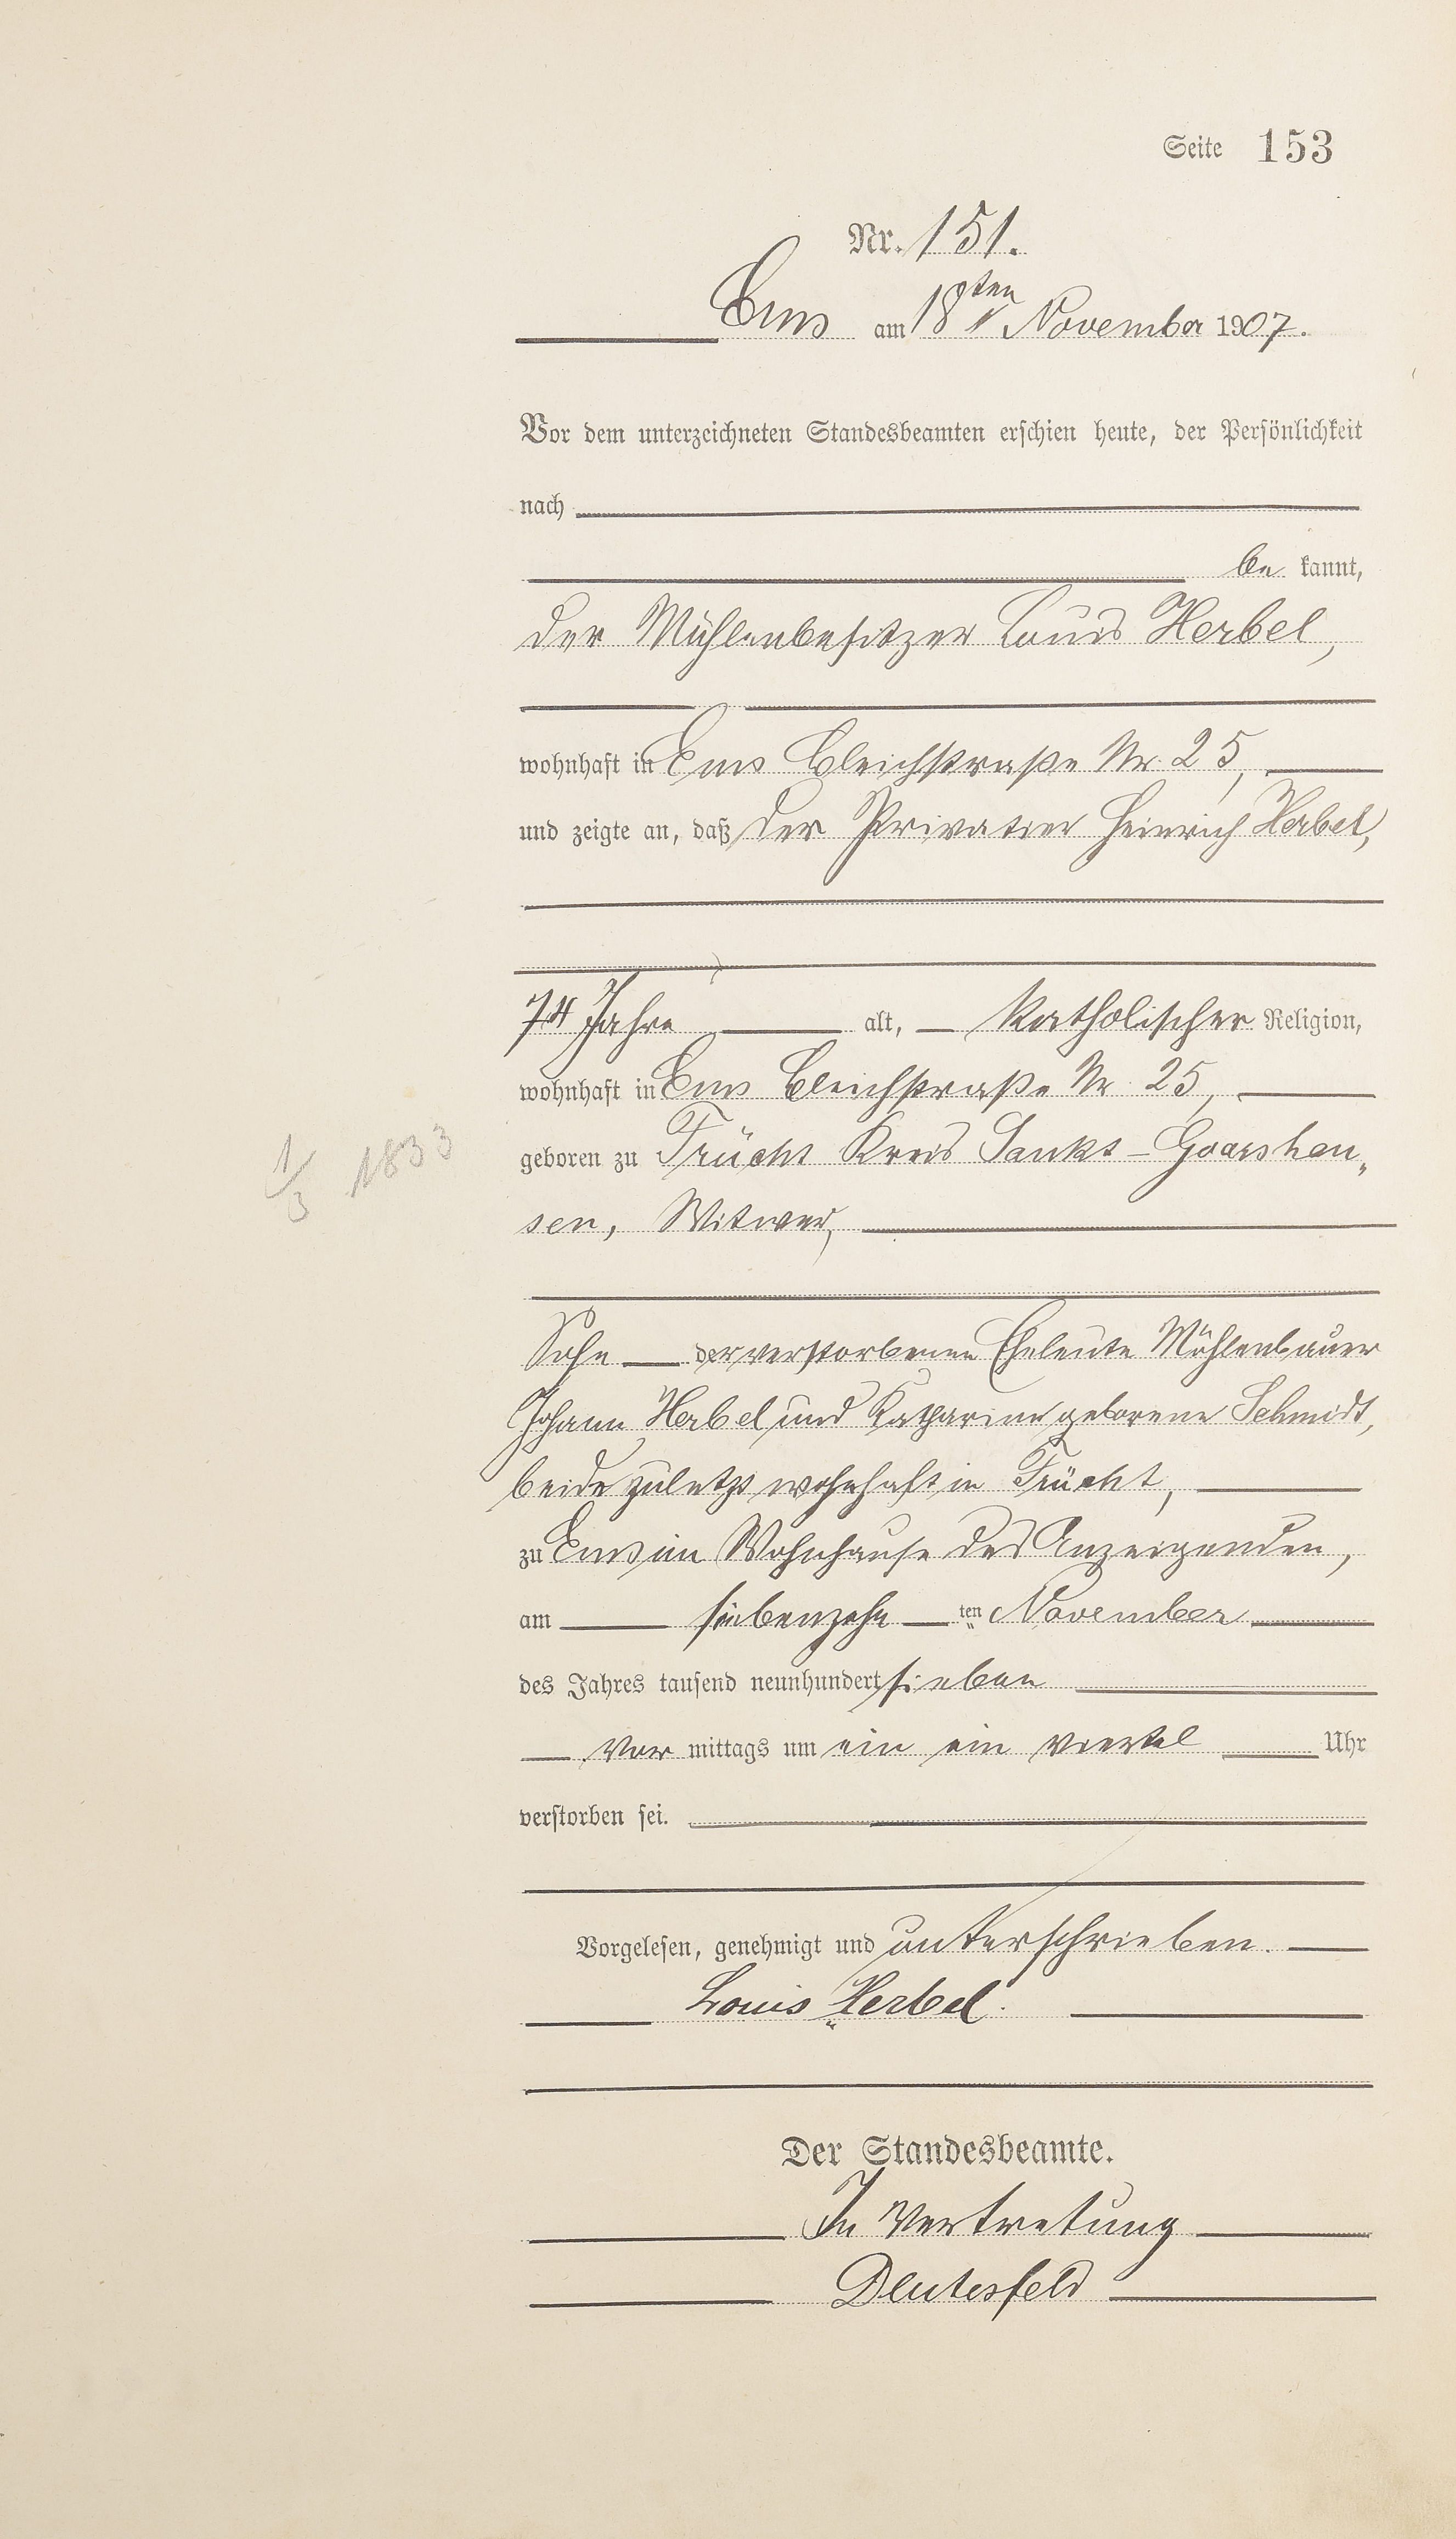 Seite 153
Nr. 151.
Ems am 18ten November 1907.
Vor dem unterzeichneten Standesbeamten erschien heute, der Persönlichkeit
nach
be kannt,
der Mühlenbesitzer Louis Herbel,
wohnhaft in Ems Bleichstraße Nr. 25,
und zeigte an, daß der Privatier Heinrich Herbel,
74 Jahre alt, katholischer Religion,
wohnhaft in Ems Bleichstraße Nr. 25,
geboren zu Frücht Kreis Sankt-Goarshau„
1/3 1833
sen, Witwer,
Sohn der verstorbenen Eheleute Mühlenbauer
Johann Herbel und Katharina geborene Schmidt,
beide zuletzt wohnhaft in Frücht,
zu Ems im Wohnhause des Anzeigenden,
am siebenzehn ten November
des Jahres tausend neunhundert sieben
Vor mittags um ein ein viertel Uhr
verstorben sei.
Vorgelesen, genehmigt und unterschrieben.
Louis Herbel.
Der Standesbeamte.
In Vertretung
Deutesfeld